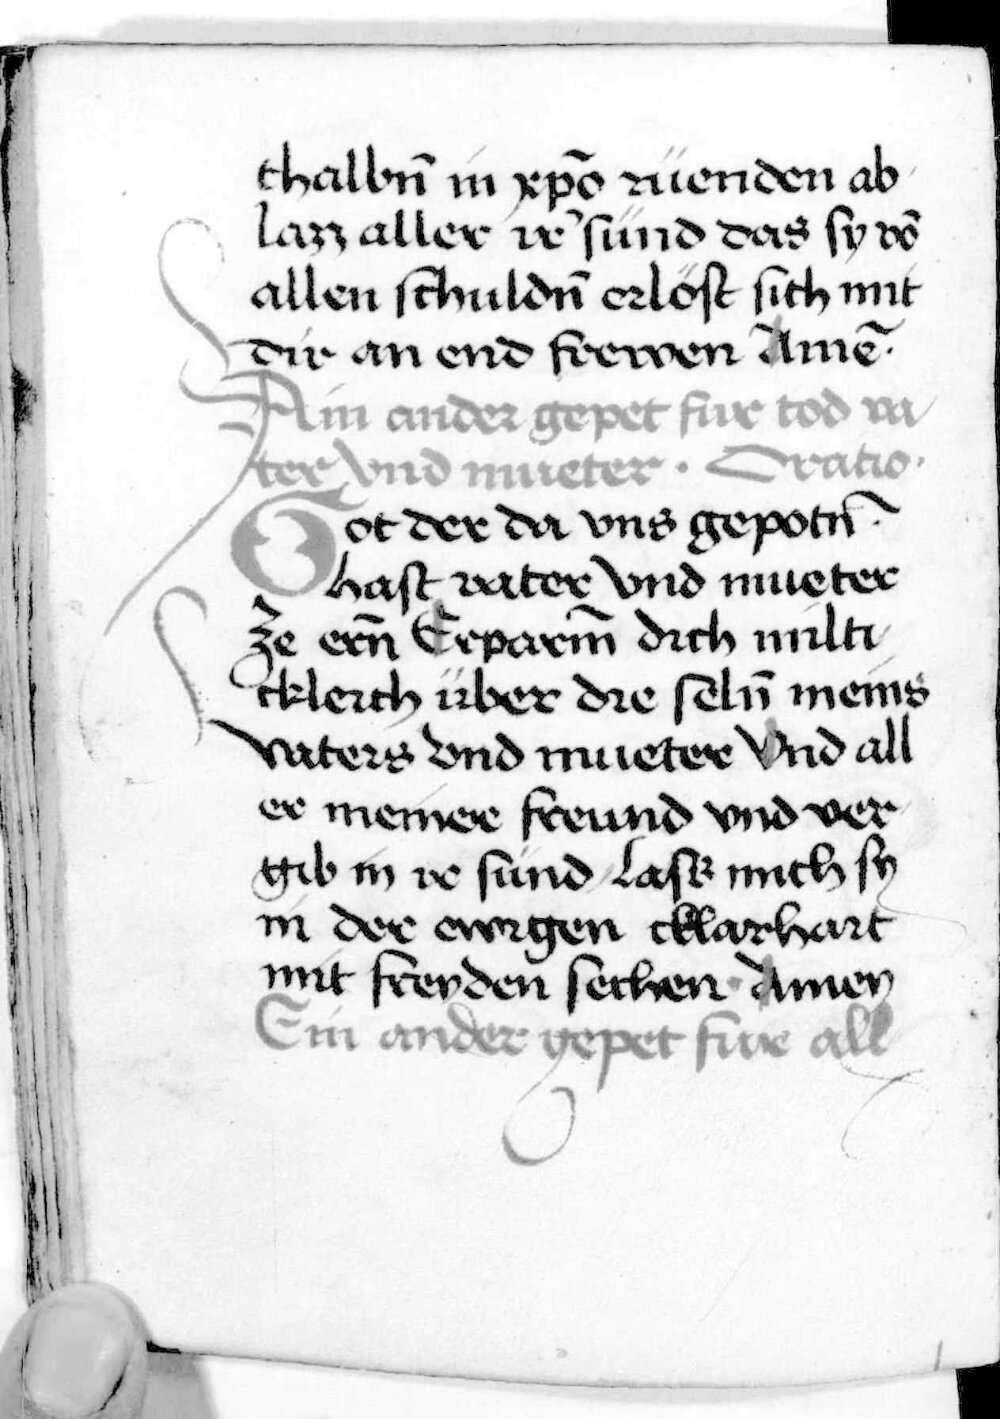 thalbn̄ in xp̄o rüenden ab
lazz aller ir̉ sünd das sy vō
allen schuldn̄ erlöst sich mit
dir an end frewen Amē.
Ain ander gepet fur tod va
ter vnd mueter · Oratio ·
Got der da vns gepotn̄
hast vater vnd mueter
ze ern̄ Erparm̄ dich milti
ckleich über die seln̄ meins
vaters vnd mueter Vnd all
er meiner freund vnd ver
gib in ir sünd Lass mich sy
in der ewigen cklarhait
mit freyden sechen · Amen
Ein ander gepet fur all